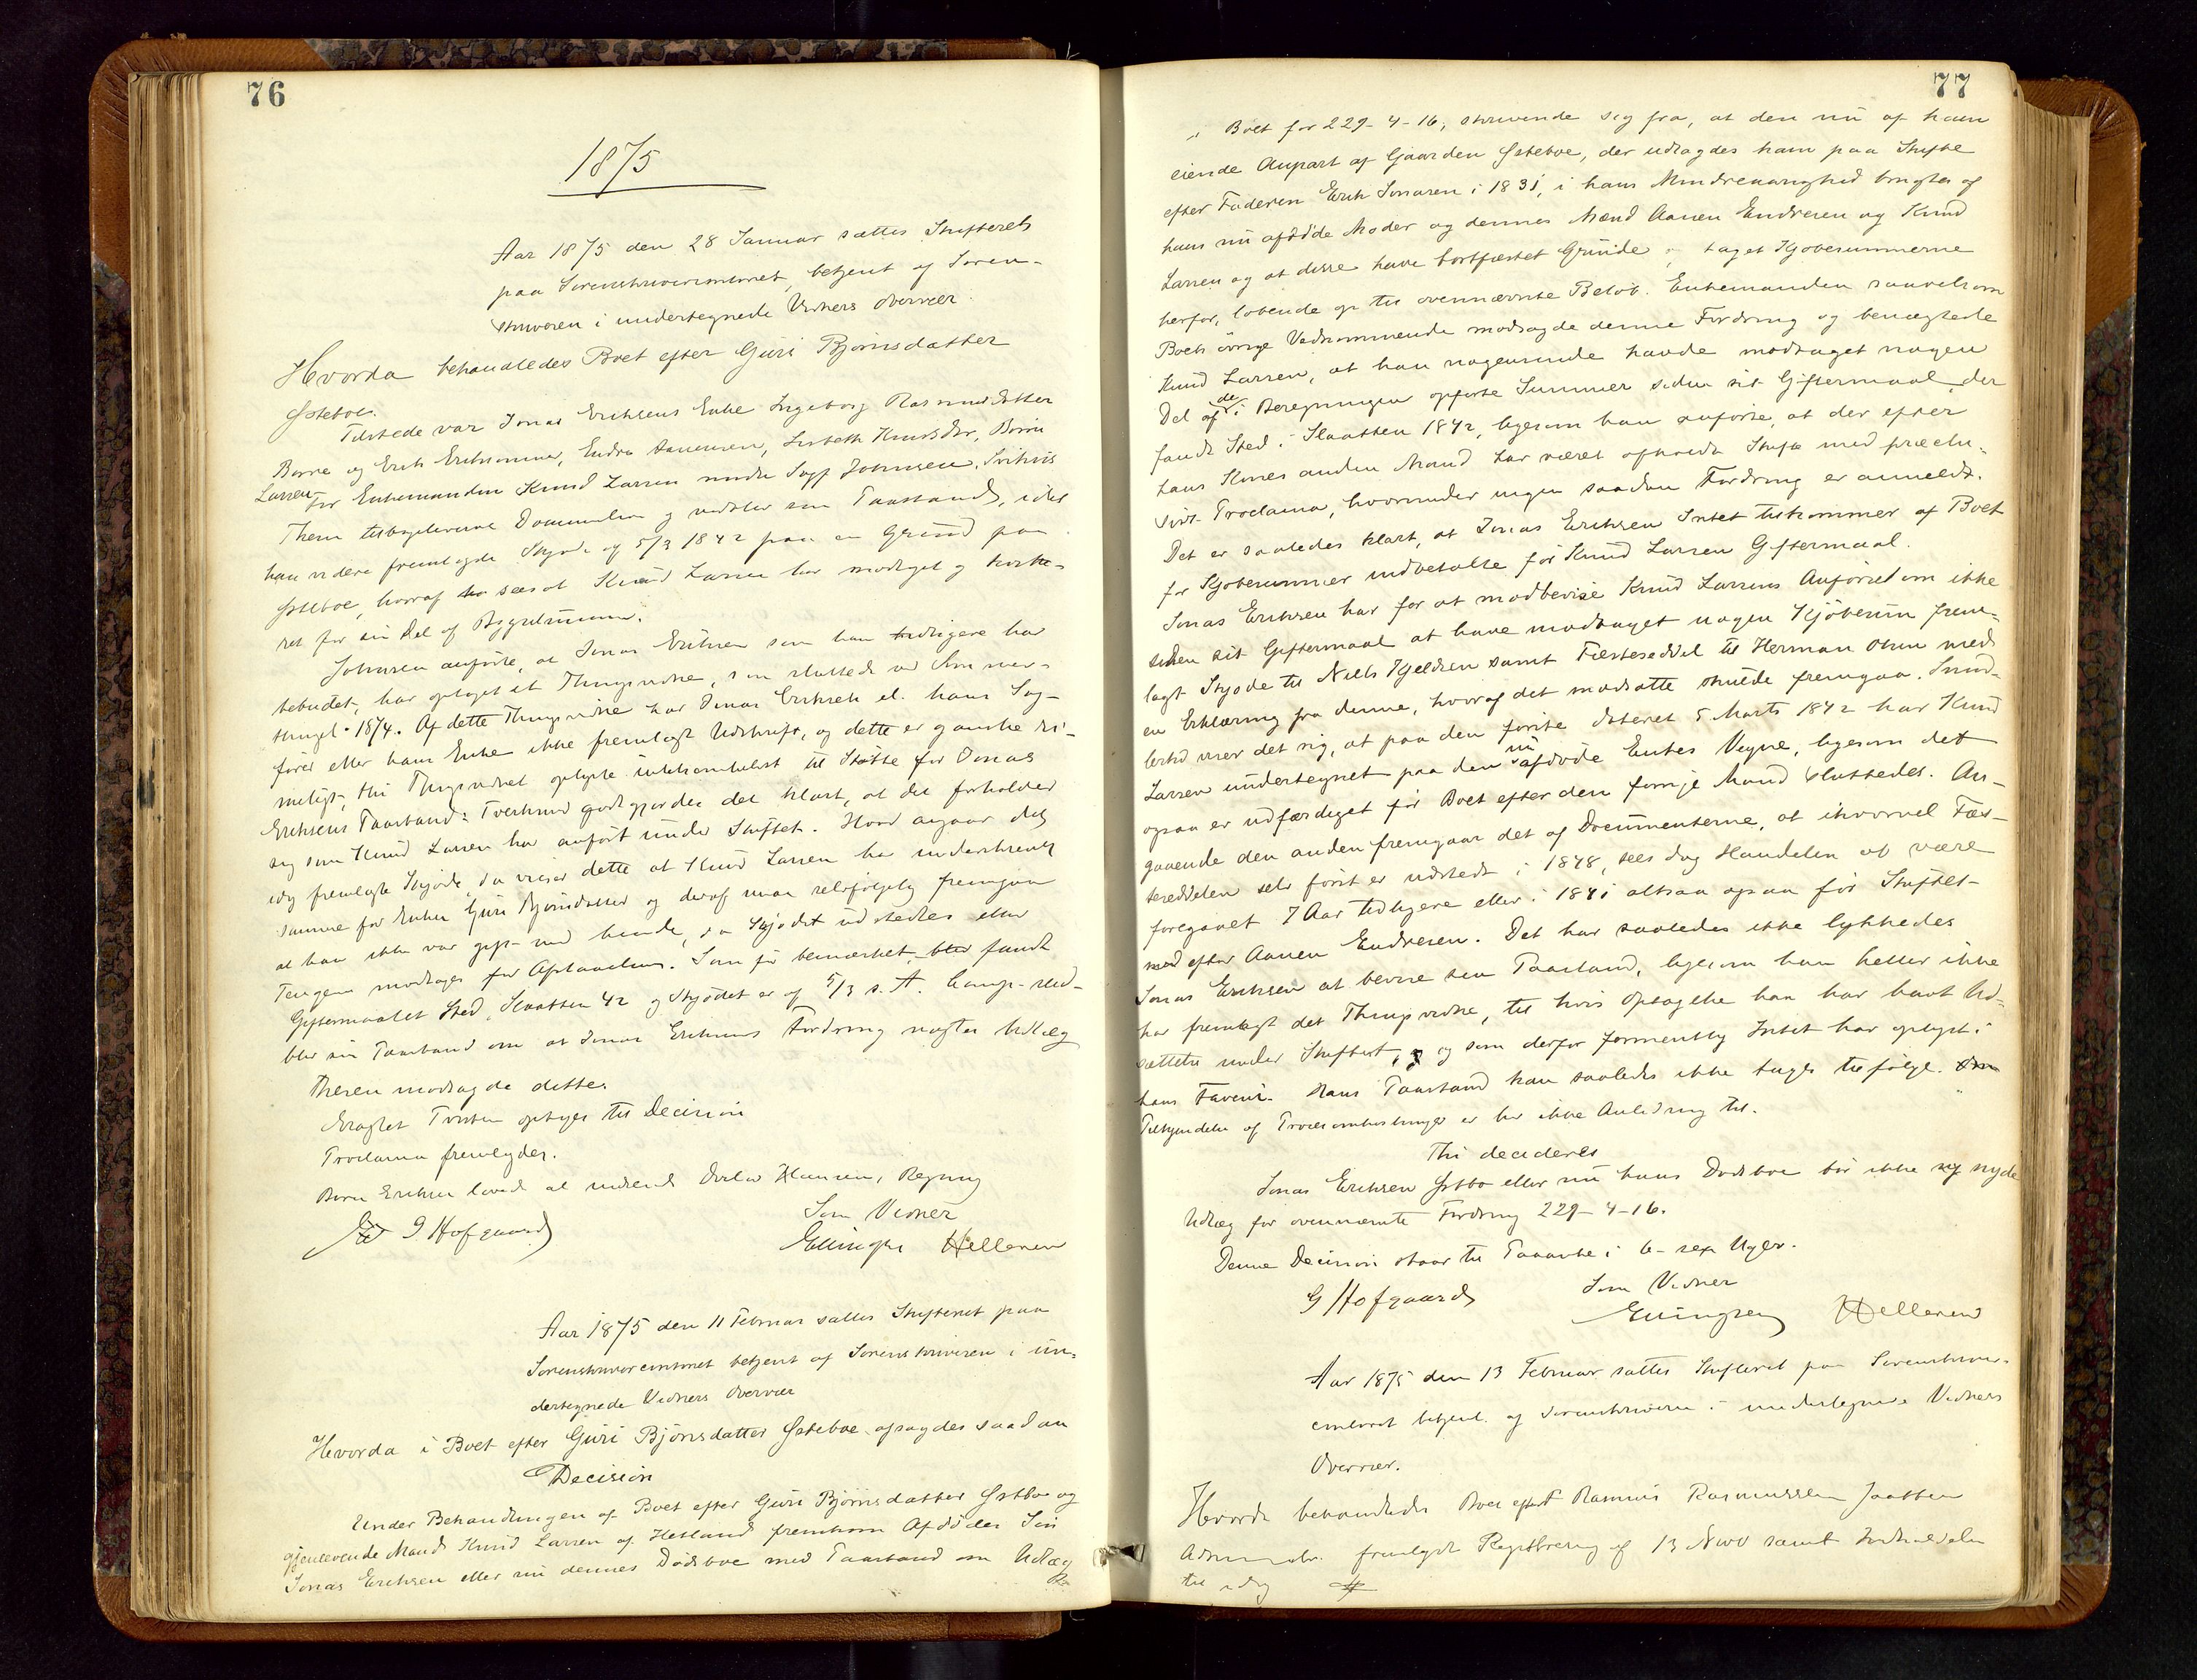 76
1875
Aar 1875 den 28 Januar sattes Skifteret
paa Sorenskrivercontoret, betjent af Soren-
skriveren i undertegnede Vidners Overvær.
Hvorda behandledes Boet efter Guri Bjørnsdatter
Østeboe.
Tilstede var Jonas Eriksens Enke Ingeborg Rasmusdatter
Børre og Erik Eriksønner, Endre Aanensen, Lisbeth Knudsdtr, Børre
Larsen
For Enkemanden Knud Larsen mødte Sagf Johnsen,
han videre fremlagde Skjøde af 5/3 1842 paa en Grund paa
Østeboe, hvoraf sees at Knud Larsen har modtaget og kvitte-
ret for sin Del af Bygselsummen.
Johnsen anførte, at Jonas Eriksen som han tidligere har
bebudet, har optaget et Thingsvidne, som sluttede ved Sommer-
thinget 1874. Af dette Thingsvidne har Jonas Eriksen el. hans Sag-
fører eller hans Enke ikke fremlagt Udskrift, og dette er ganske ri-
meligt, thi Thingsvidnet oplyste intetsomhelst til Støtte for Jonas
Eriksens Paastand; Tvertimod godtgjordes det klart, at det forholder
sig som Knud Larsen har anført under Skiftet. Hvad angaar det
idag fremlagte Skjøde, da viser dette at Knud Larsen har underskrevet
samme for Enken Guri Bjørnsdatter og deraf maa selvfølgelig fremgaa
at han ikke var gift med hende, da Skjødet udstedtes eller
Pengene modtages for Afstaaelsen. Som før bemærket, fandt
Giftermaalet Sted Slaatten 42 og Skjødet er af 5/3 s. A. Comp. ned-
blev sin Paastand om at Jonas Eriksens Fordring nægtes Udlæg
Theren modsagde dette.
Eragtet Tvisten optages til Decision
Proclama fremlagdes.
Børre Eriksen lovede at indsende Hansen, Regning
G Hofgaard
Som Vidner
Ellingsen Helleren
Aar 1875 den 11 Februar sattes Skifteret paa
Sorenskrivercontoret betjent af Sorenskriveren i un-
dertegnede Vidners Overvær
Hvorda i Boet efter Guri Bjørnsdatter Østeboe afsagdes saadan
Decision
Under Behandlingen af Boet efter Guri Bjørnsdatter Østboe og
gjenlevende Mand Knud Larsen af Hetland fremkom Afdødes Søn
Jonas Eriksen eller nu dennes Dødsboe med Paastand om Udlæg
77
i Boet for 229-4-16, skrivende sig fra, at den nu af ham
eiende Anpart af Gaarden Østeboe, der udlagdes ham paa Skifte
efter Faderen Erik Jonasen i 1831, i hans Mindreaarighed brugtes af
hans nu afdøde Moder og dennes Mænd Aanen Endresen og Knud
Larsen og at disse have bortfæstet Grunde og taget Kjøbesummerne
herfor, løbende op til ovennævnte Beløb. Enkemanden saavelsom
Boets øvrige Vedkommende modsagde denne Fordring og benægtede
Knud Larsen, at han nogensinde havde modtaget nogen
Del af de i Beregningen opførte Summer siden sit Giftermaal der
fandt Sted i Slaatten 1842, ligesom han anførte, at der efter
hans Kones anden Mand har været afholdt Skifte med præclu-
sivt Proclama, hvorunder ingen saadan Fordring er anmeldt.
Det er saaledes klart, at Jonas Eriksen Intet tilkommer af Boet
for Kjøbesummer indbetalte før Knud Larsens Giftermaal.
Jonas Eriksen har for at modbevise Knud Larsens Anførsel om ikke
siden sit Giftermaal at have modtaget nogen Kjøbesum frem-
lagt Skjøde til Niels Kjeldsen samt Fæsteseddel til Herman Olsen med
en Erklæring fra denne, hvoraf det modsatte skulde fremgaa. Imid-
lertid viser det sig, at paa den første dateret 5 Marts 1842 har Knud
Larsen undertegnet paa den nu afdøde Enkes Vegne, ligesom det
ogsaa er udfærdiget før Boet efter den forrige Mand sluttedes. An-
gaaende den anden fremgaar det af Documenterne, at ihvorvel Fæs-
teseddelen selv først er udstedt i 1848, sees dog Handelen at være
foregaaet 7 Aar tidligere eller i 1841 altsaa ogsaa før Skiftet
efter Aanen Endresen. Det har saaledes ikke lykkedes
Jonas Eriksen at bevise sin Paastand, ligesom han heller ikke
har fremlagt det Thingsvidne, til hvis Optagelse han har havt Ud-
sættelse under Skiftet, og som derfor formentlig Intet har oplyst i
hans Faveur. Hans Paastand kan saaledes ikke tages tilfølge.
Tilkjendelse af Procesomkostninger er her ikke Anledning til.
Thi decideres
Jonas Eriksen Østbø eller nu hans Dødsboe bør ikke nyde
Udlæg for ovennævnte Fordring 229-4-16.
Denne Decision staar til Paaanke i 6- sex Uger.
G Hofgaard
Som Vidner
Ellingsen Helleren
Aar 1875 den 13 Februar sattes Skifteret paa Sorenskriver-
contoret betjent af Sorenskriveren i undertegnede Vidners
Overvær.
Hvorda behandledes Boet efter Rasmus Rasmussen Jaatten
fremlagde Registrering af 13 Novb samt Indkaldelse
til idag